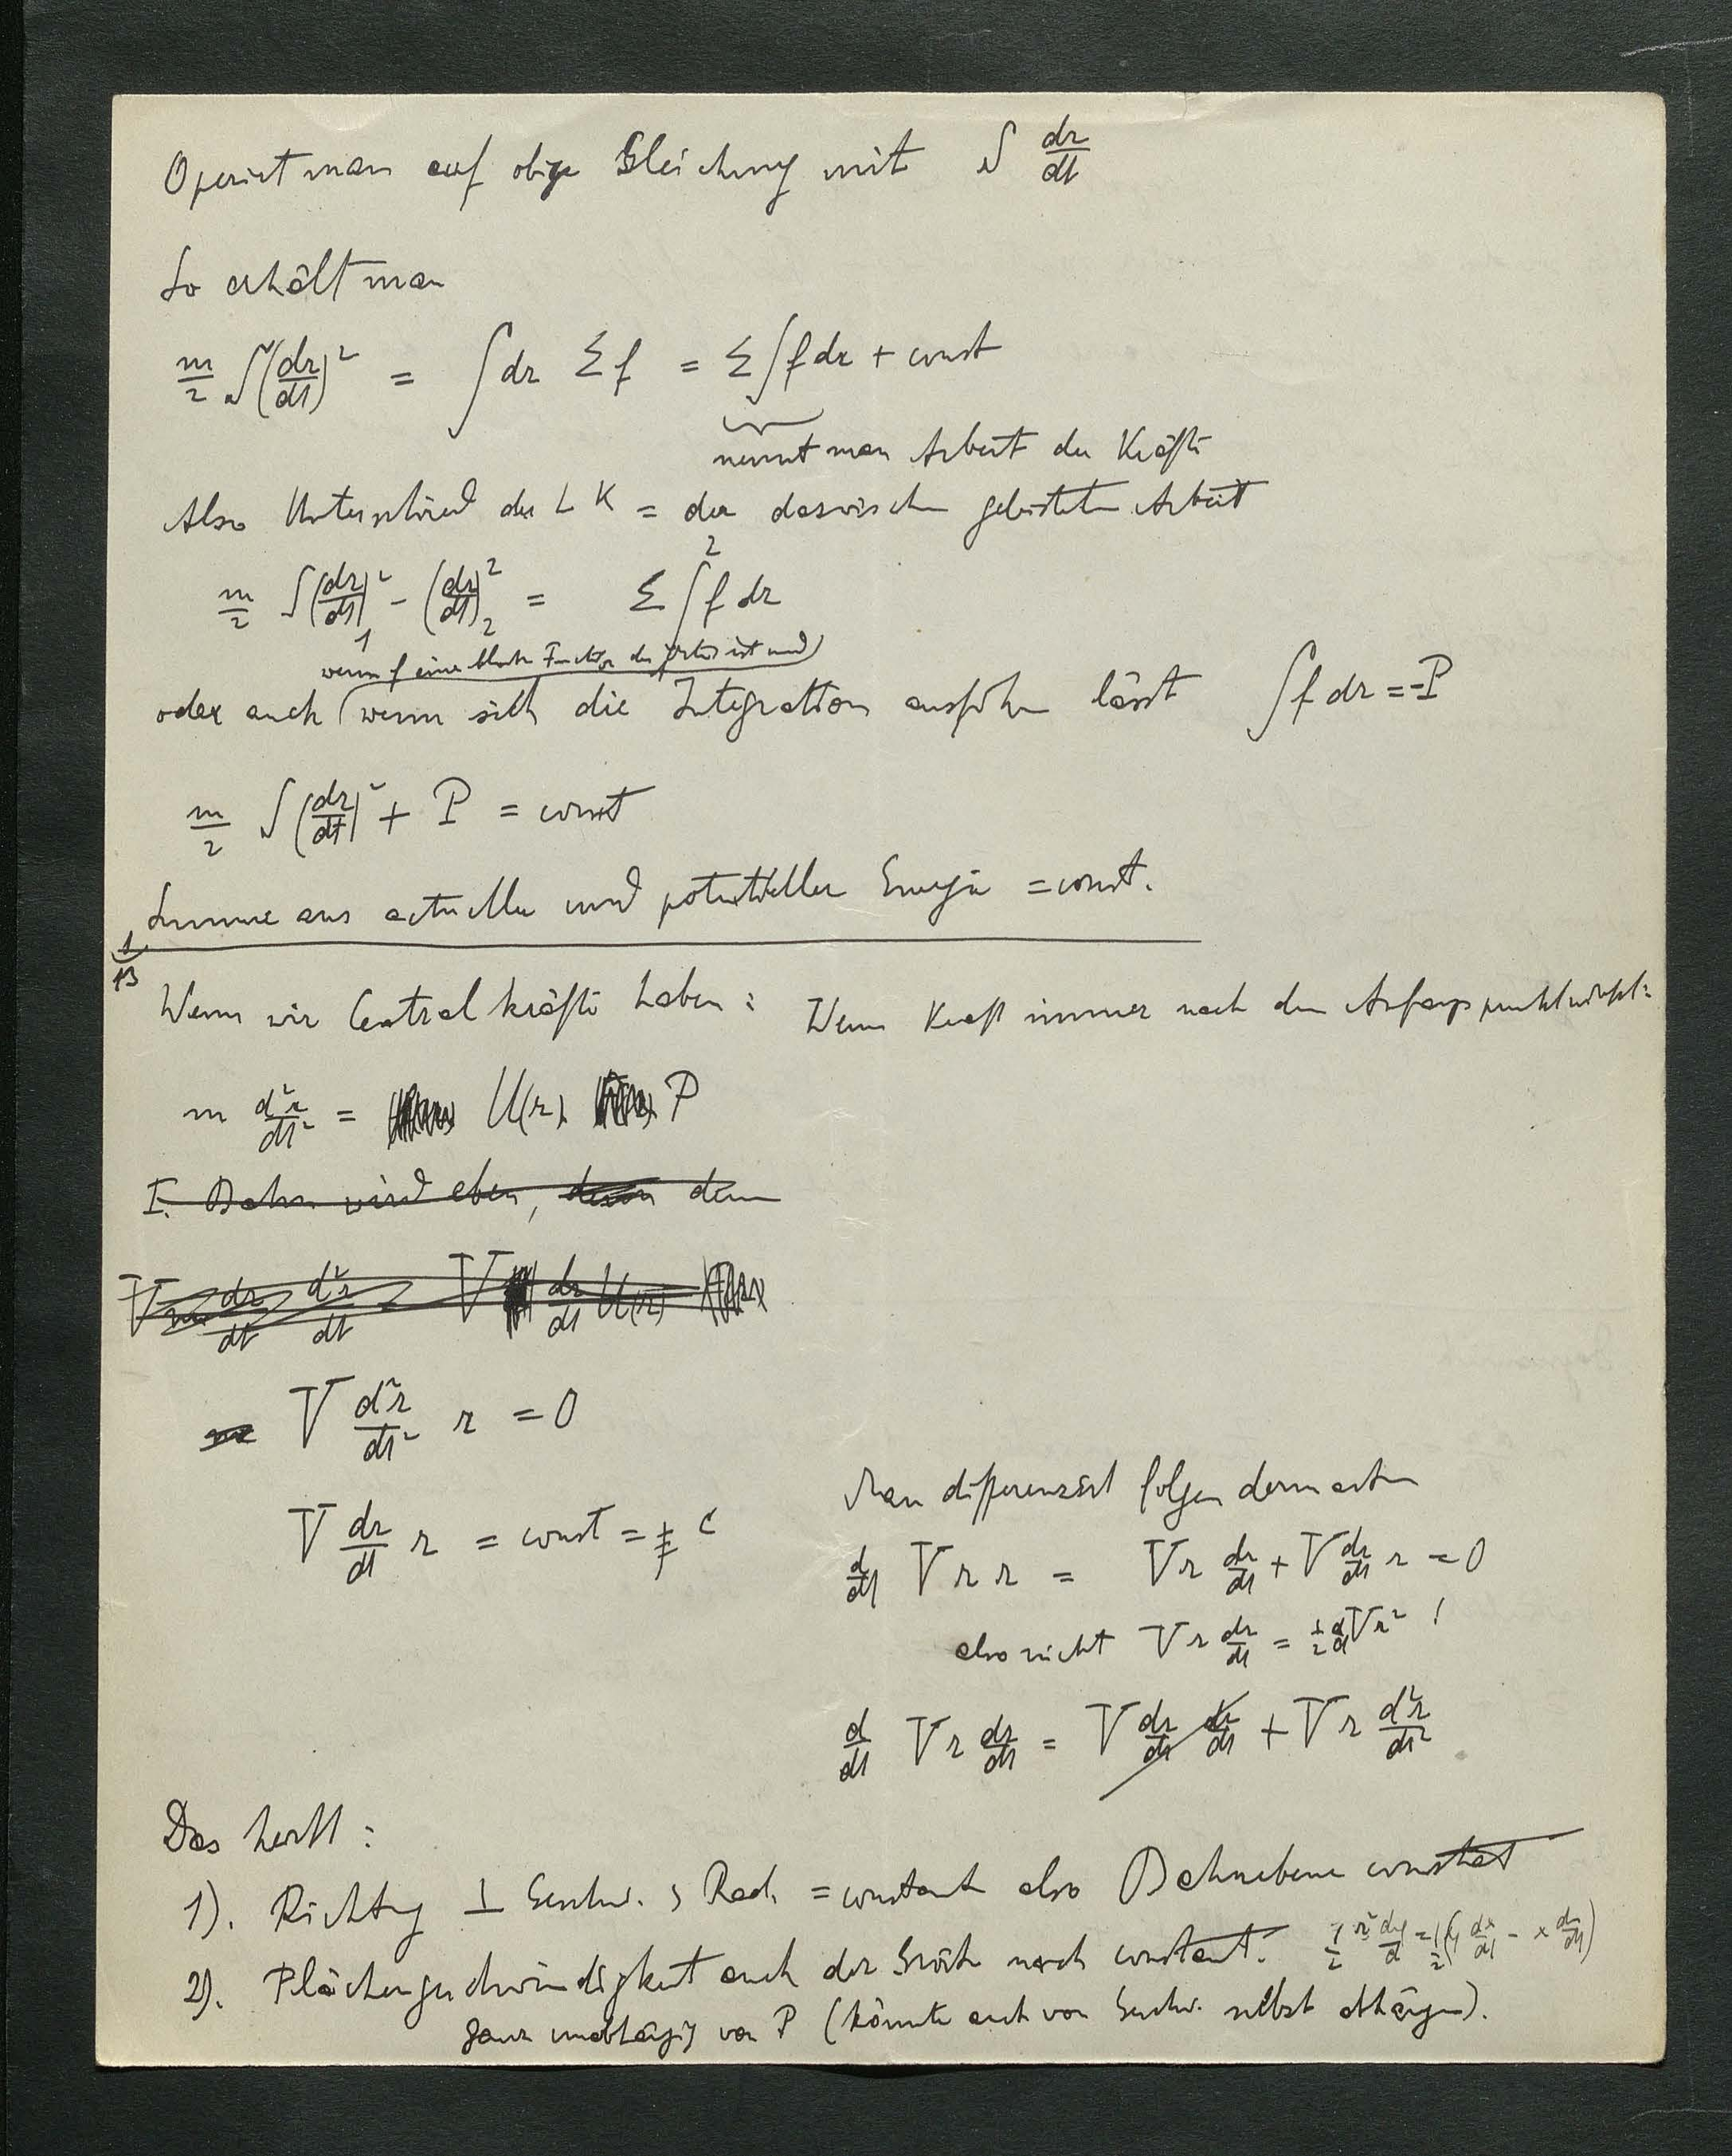 Operiert man auf obige Gleichung mit S dr/dt
So erhält man
m/2 S(dr/dt)² = ∫dr Σf = Σ∫f dr + const
nennt man Arbeit der Kräfte
Also Unterschied der L K = der dazwischen geleisteten Arbeit
m/2 S(dr/dt)²₁ - (dr/dt)²₂ = Σ∫² f dr
wenn f eine blosse Function des Ortes ist und
oder auch (wenn sich die Integration ausführen lässt ∫f dr = -P
m/2 S(dr/dt)² + P = const
Summe aus actueller und potentieller Energie = const.
1/13
Wenn wir Centralkräfte haben: Wenn Kraft immer nach dem Anfangspunkt wirkt:
m d²r/dt² = U(r) P
I. Bahn wird eben, denn denn
V m dr/dt d²r/dt = V dr/dt U(r)
m V d²r/dt² r = 0
V dr/dt r = const = c
Man differenziert folgendermassen
d/dt V r r = V r dr/dt + V dr/dt r = 0
also nicht V r dr/dt = 1/2 d/dt V r² !
d/dt V r dr/dt = V dr/dt dr/dt + V r d²r/dt²
Das heisst:
1). Richtung ⊥ Geschw. & Rad. = constant also Bahnebene constant
2). Flächengeschwindigkeit auch der Grösse nach constant. 1/2 r² dφ/dt = 1/2 (y dx/dt - x dy/dt)
ganz unabhängig von P (könnte auch von Geschw. selbst abhängen).